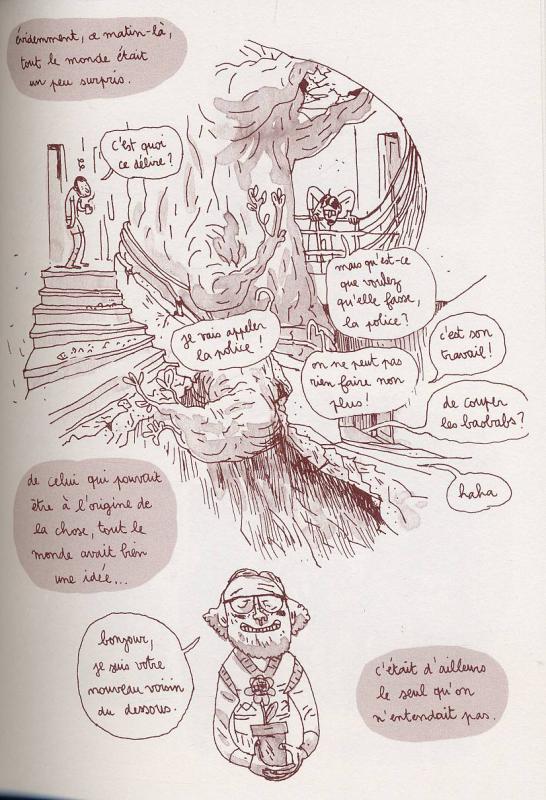 évidemment, ce matin-là,
tout le monde était
un peu surpris.
c'est quoi
ce délire ?
mais qu'est-ce
que voulez
qu'elle fasse,
la police ?
je vais appeler
la police !
c'est son
travail !
on ne peut pas
rien faire non
plus !
de couper
les baobabs ?
haha
de celui qui pouvait
être à l'origine de
la chose, tout le
monde avait bien
une idée...
bonjour,
je suis votre
nouveau voisin
du dessous.
c'était d'ailleurs
le seul qu'on
n'entendait pas.